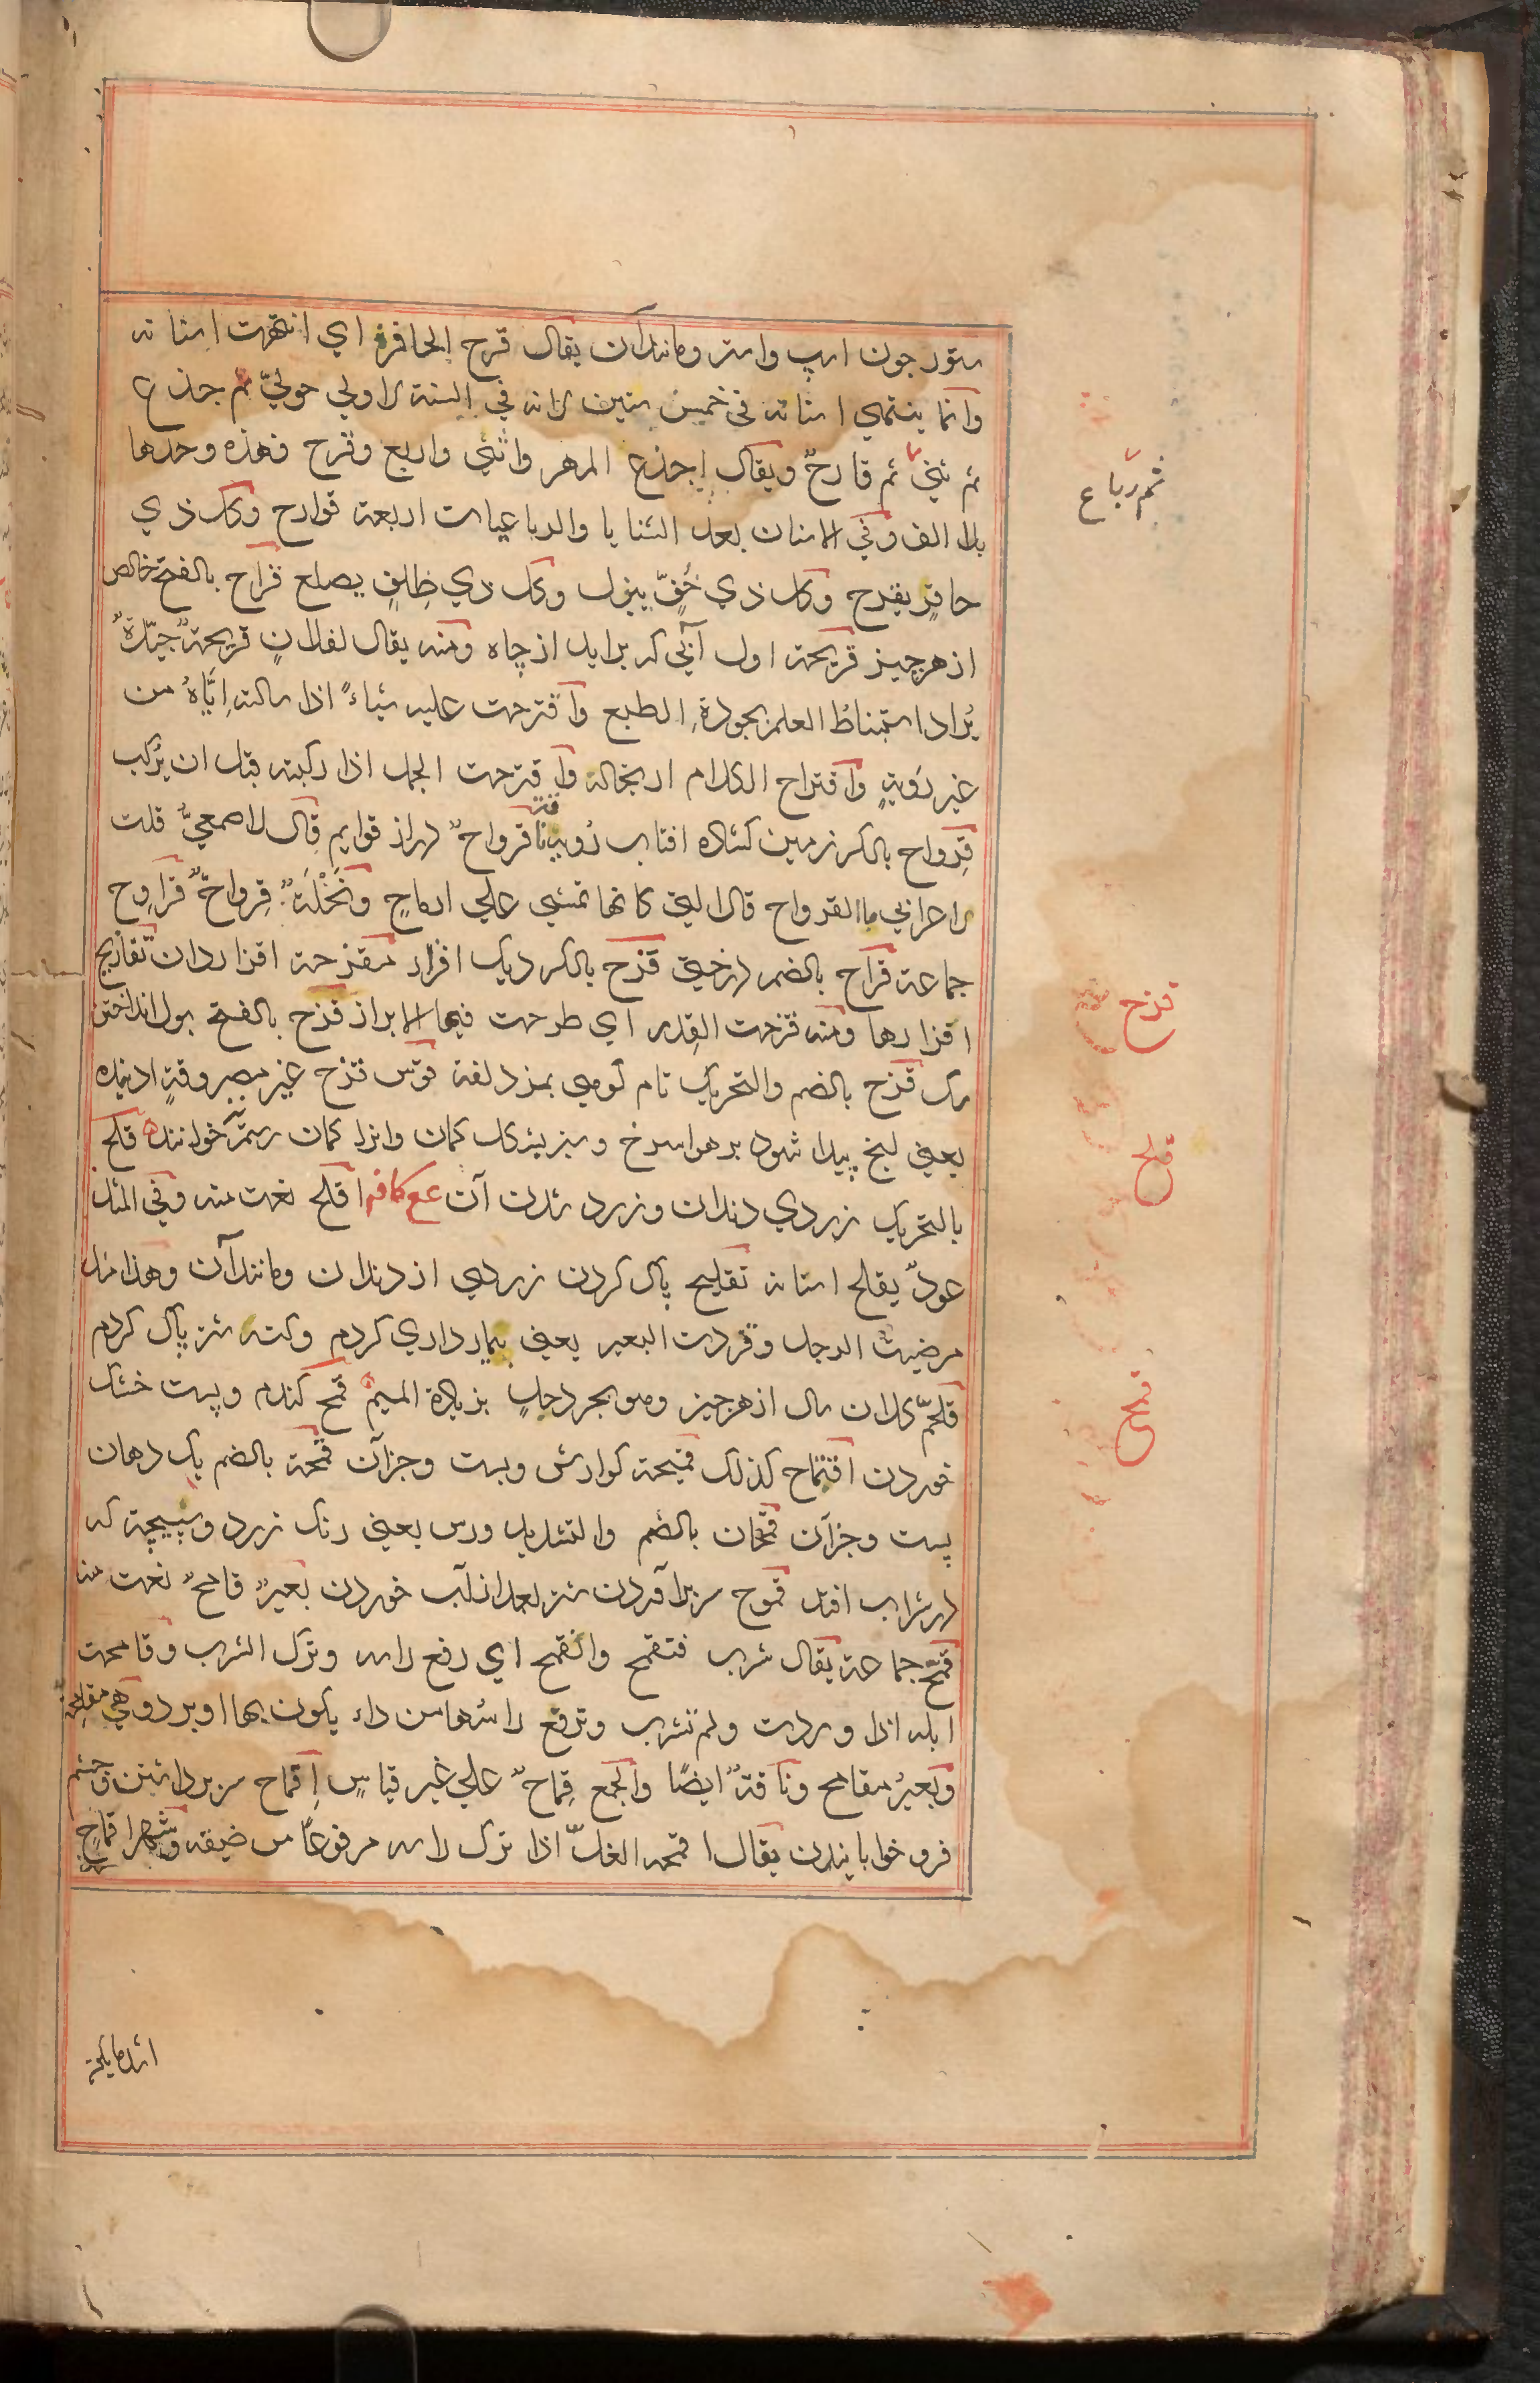 ستور چون اسپ واستر ومانند آن يقال قرح الحافرة اي انتهت اسنانه
وانما ينتهي اسنانه في خمس سنين لانه في السنة الاولي حوليّ ثم جذع
ثم ثنيّ ثم قارحٌ ويقال اجذع المهر واثني واربع وقرح فهذه وحدها
بلا الف وفي الاسنان بعد الثنايا والرباعيات اربعة قوارح وكل ذي
حافرٍ يقرح وكل ذي خُفّ يبزل وكل ذي ظِلفٍ يصلع قراح بالفتح خالص
از هر چيز قريحة اول آبي كه برايد از چاه ومنه يقال لفلانٍ قريحةٌ جيّدةٌ
يُراد استنباطُ العلم بجودةِ الطبع واقترحت عليه شياءً اذا سالته اِيَّاهُ من
غير رَويةٍ واقتراح الكلام ارتجاله واقترحت الجمل اذا ركبته قبل ان يُركب
قِرواح بالكسر زمين كشاده افتاب رُوي ناقة قرواحٌ دراز قوايم قال الاصمعيُّ قلت
لاعرابي ما القرواح قال التي كانها تمشي علي ارماحٍ ونَخْلَةٌ قِرواحٌ قراوِح
جماعة قراح بالضم درختي قزح بالكسر ديك افزار مقزحة افزاردان تقازيح
افزارها ومنه قزحت القِدر اي طرحت فيها الابزار قزح بالفتح بول انداختن
سك قزح بالضم والتحريك نام كوهي بمزدلفة قوس قزح غير مصروفةٍ ادينده
يعني لبخ پيدا شود بر هوا سرخ وسبز بشكل كمان وانرا كمان رستم خوانند قلح
بالتحريك زردي دندان وزرد شدن آن عع كا فم اقلح نعت منه وفي المثل
عودٌ يقلح اسنانه تقليح پاك كردن زردي از دندان ومانند آن وهذا مثل
مرضيت الرجل وقردت البعير يعني بيمارداري كردم وكنه شتر پاك كردم
قلحمّ كلان سال از هر چيز وهو بجردحلٍ بزيادة الميم قمح كندم وپست خشك
خوردن اقتماح كذلك قميحة كوارش وپست وجز آن قمحة بالضم يك دهان
پست وجز آن قمحان بالضم والتشديد ورس يعني رنك زرد وسپيچه كه
در شراب افتد قموح سر برآوردن شتر بعد از آب خوردن بعيرٌ قامحٌ نعت منا
قمّح جماعة يقال شرب فتقمح وانقمح اي رفع راسه وترك الشرب وقامحت
ابله اذا وردت ولم تشرب وترفع راسُها من داء يكون بها او برد وهي مقامحة
وبعيرُ مقامح وناقةٌ ايضًا والجمع قِماحٌ علي غير قياسٍ اِقماح سر برداشتن وچشم
فرو خوابانيدن يقال اقمحه الغلّ اذا ترك راسه مرفوعًا من ضيقه وشهرا قماحٍ
ثم رباع
قزح
قلح
قمح
اشد ما يكون